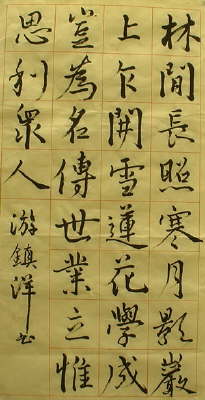 林閒長照寒月影巖
上乍開雪蓮花學成
豈為名傳世業立惟
思利眾人
游鎮洋书